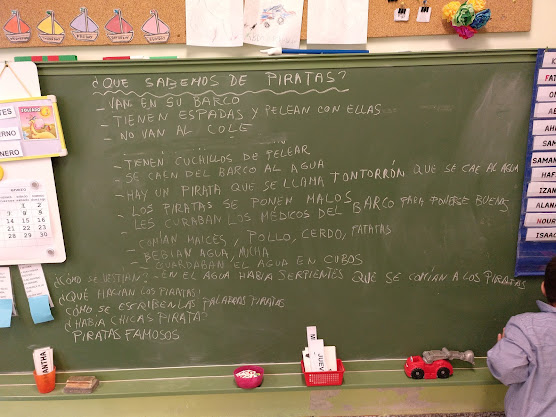 ¿QUE SABEMOS DE PIRATAS?
- VAN EN SU BARCO
- TIENEN ESPADAS Y PELEAN CON ELLAS
- NO VAN AL COLE
- TIENEN CUCHILLOS DE PELEAR
- SE CAEN DEL BARCO AL AGUA
- HAY UN PIRATA QUE SE LLAMA TONTORRÓN QUE SE CAE AL AGUA
- LOS PIRATAS SE PONEN MALOS
- LES CURABAN LOS MÉDICOS DEL BARCO PARA PONERSE BUENOS
- COMÍAN MAICES, POLLO, CERDO, PATATAS
- BEBÍAN AGUA, MUCHA
- GUARDABAN EL AGUA EN CUBOS
- EN EL AGUA HABÍA SERPIENTES QUE SE COMÍAN A LOS PIRATAS
¿CÓMO SE VESTÍAN?
¿QUÉ HACÍAN LOS PIRATAS?
CÓMO SE ESCRIBEN LAS PALABRAS PIRATAS
¿HABÍA CHICAS PIRATA?
PIRATAS FAMOSOS
ENERO
SAM
HAF
IZAN
ALAN
ISAAC